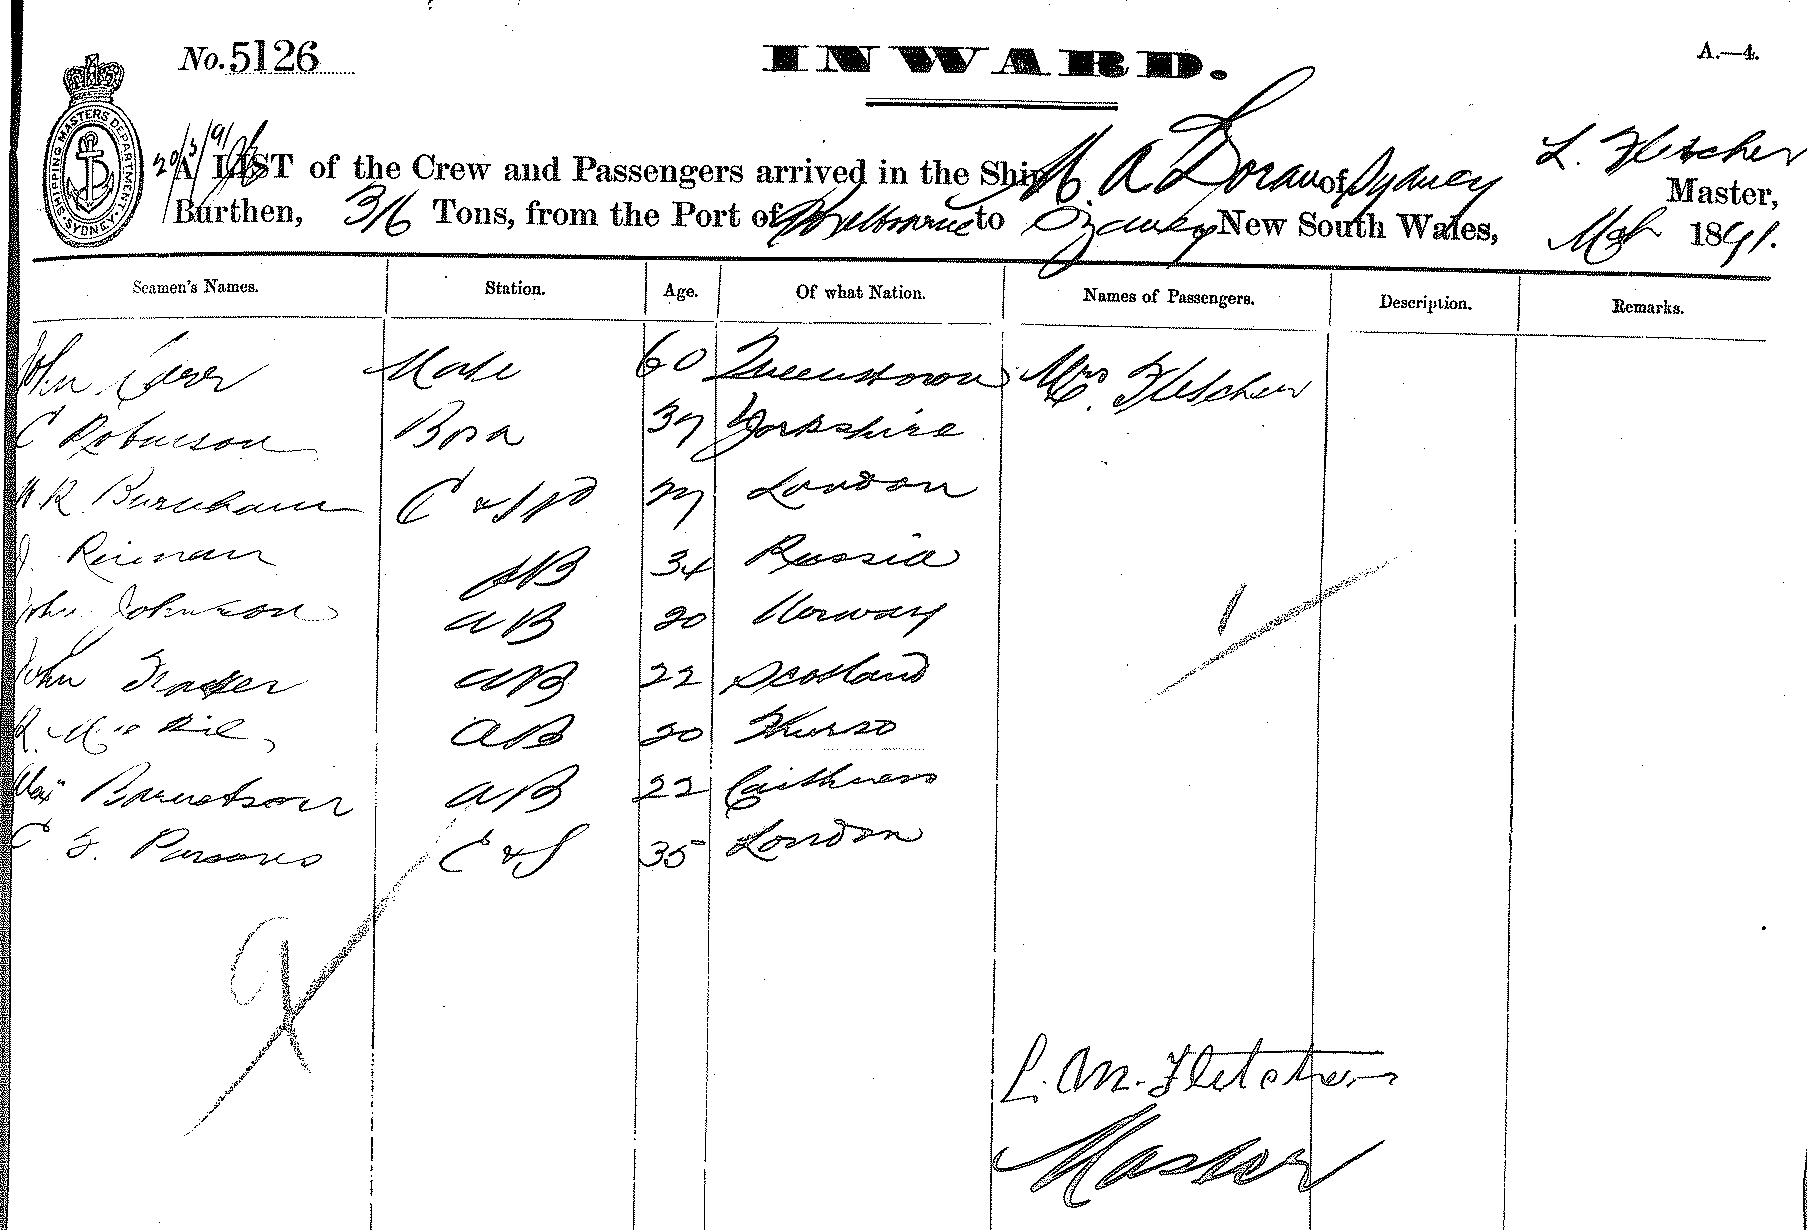 No. 5126
INWARD.
A.—4.
SHIPPING MASTERS DEPARTMENT. SYDNEY
20/3/91
A LIST of the Crew and Passengers arrived in the Ship M. A Doran of Sydney L. Fletcher Master,
Burthen, 316 Tons, from the Port of Melbourne to Sydney New South Wales, 1891.
Seamen's Names. Station. Age. Of what Nation. Names of Passengers. Description. Remarks.
John Carr Mate 60 Queenstown Mrs. Fletcher
C Robinson Bosn 37 Yorkshire
W R Burnham C & Std 27 London
J. Reiman AB 34 Russia
John Johnson AB 20 Norway
John Fraser AB 22 Scotland
R. AB 20 Thurso
Alex Barnetson AB 22 Caithness
C. F. Parsons C & S 35 London
1
9
L. M. Fletcher
Master